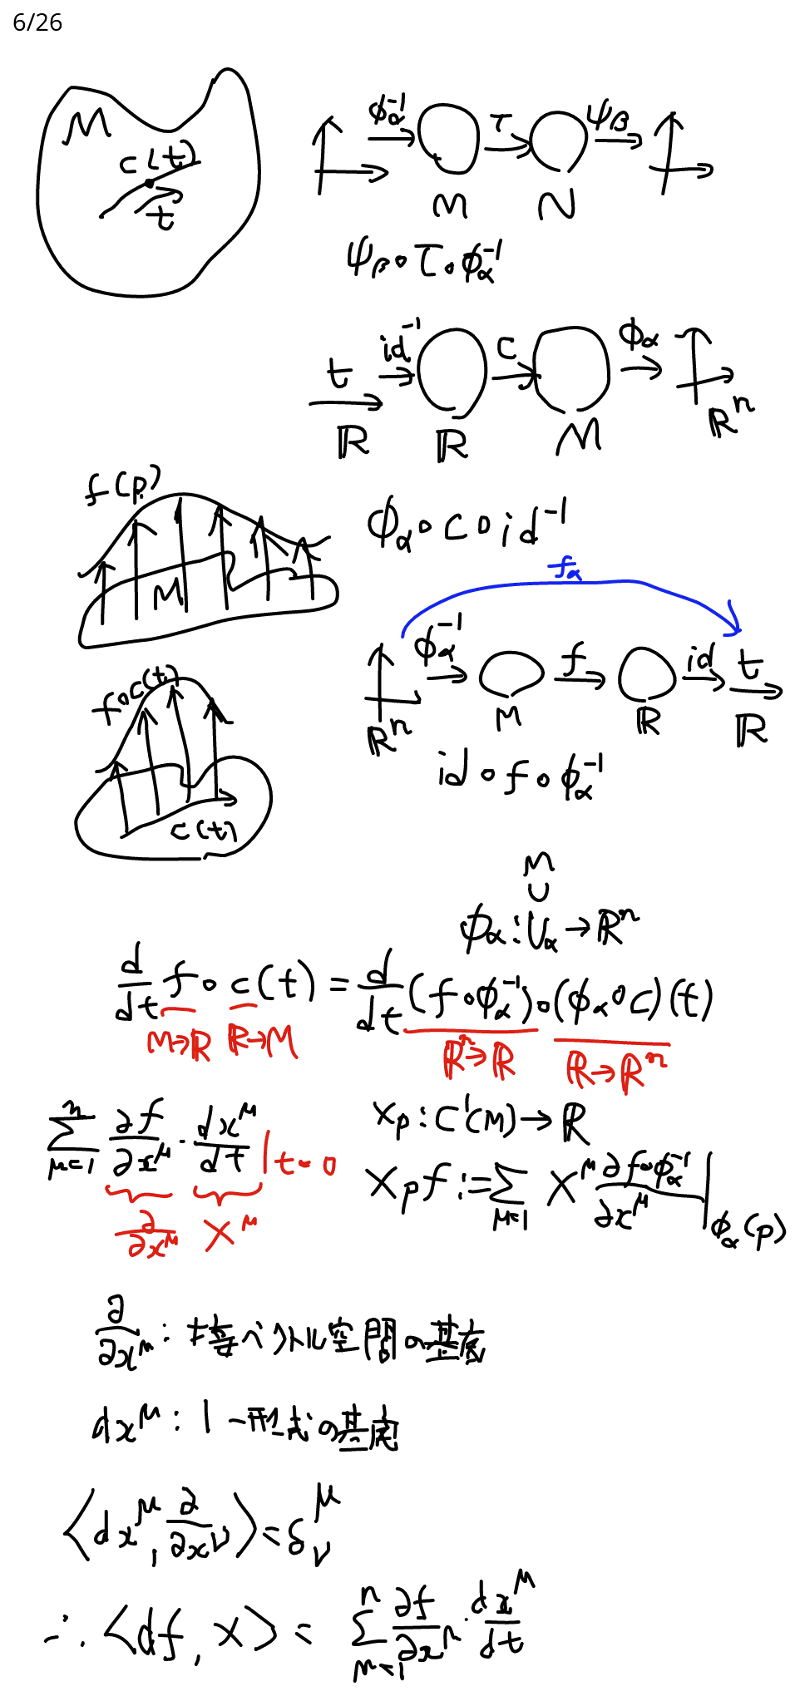 6/26
M
c(t)
t
φα⁻¹ τ ψβ
M N
ψβ∘τ∘φα⁻¹
t id⁻¹ c φα
ℝ ℝ M ℝⁿ
φα∘c∘id⁻¹
f(p)
M
fα
φα⁻¹ f id t
ℝⁿ M ℝ ℝ
id∘f∘φα⁻¹
f∘c(t)
c(t)
M
∪
φα:Uα→ℝⁿ
d/dt f∘c(t) = d/dt (f∘φα⁻¹)∘(φα∘c)(t)
M→ℝ ℝ→M ℝⁿ→ℝ ℝ→ℝⁿ
Σ_{μ=1}^{n} ∂f/∂x^μ · dx^μ/dt |t=0
∂/∂x^μ X^μ
Xp:C¹(M)→ℝ
Xpf:=Σ_{μ=1} X^μ ∂f∘φα⁻¹/∂x^μ |φα(p)
∂/∂x^μ: ベクトル空間の基底
dx^μ: 1-形式の基底
⟨dx^μ, ∂/∂x^ν⟩=δ^μ_ν
∴⟨df, X⟩= Σ_{μ=1}^{n} ∂f/∂x^μ · dx^μ/dt